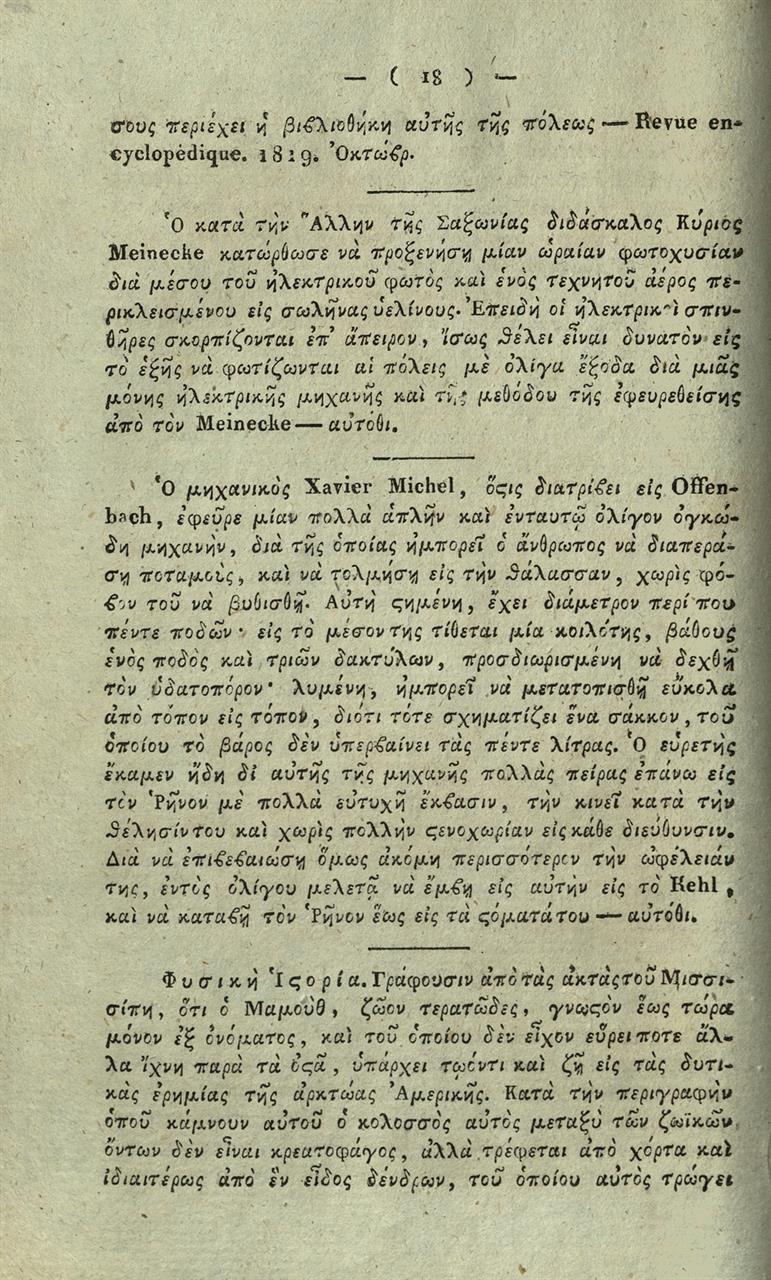 — ( 18 ) —
σους περιέχει ἡ βιβλιοθήκη αὐτῆς τῆς πόλεως — Revue en-
cyclopédique. 1819. Ὀκτώβρ.
Ὁ κατὰ τὴν Ἅλλην τῆς Σαξωνίας διδάσκαλος Κύριος
Meinecke κατώρθωσε νὰ προξενήσῃ μίαν ὡραίαν φωτοχυσίαν
διὰ μέσου τοῦ ἠλεκτρικοῦ φωτὸς καὶ ἑνὸς τεχνητοῦ ἀέρος πε-
ρικλεισμένου εἰς σωλῆνας ὑελίνους. Ἐπειδὴ οἱ ἠλεκτρικοὶ σπιν-
θῆρες σκορπίζονται ἐπ' ἄπειρον, ἴσως θέλει εἶναι δυνατὸν εἰς
τὸ ἑξῆς νὰ φωτίζωνται αἱ πόλεις μὲ ὀλίγα ἔξοδα διὰ μιᾶς
μόνης ἠλεκτρικῆς μηχανῆς καὶ τῆς μεθόδου τῆς ἐφευρεθείσης
ἀπὸ τὸν Meinecke — αὐτόθι.
Ὁ μηχανικὸς Xavier Michel, ὅςις διατρίβει εἰς Offen-
bach, ἐφεῦρε μίαν πολλὰ ἁπλῆν καὶ ἐνταυτῷ ὀλίγον ὀγκώ-
δη μηχανὴν, διὰ τῆς ὁποίας ἠμπορεῖ ὁ ἄνθρωπος νὰ διαπερά-
σῃ ποταμοὺς, καὶ νὰ τολμήσῃ εἰς τὴν θάλασσαν, χωρὶς φό-
βον τοῦ νὰ βυθισθῇ. Αὐτὴ ςημένη, ἔχει διάμετρον περί που
πέντε ποδῶν· εἰς τὸ μέσον της τίθεται μία κοιλότης, βάθους
ἑνὸς ποδὸς καὶ τριῶν δακτύλων, προσδιωρισμένη νὰ δεχθῇ
τὸν ὑδατοπόρον· λυμένη, ἠμπορεῖ νὰ μετατοπισθῇ εὔκολα
ἀπὸ τόπον εἰς τόπον, διότι τότε σχηματίζει ἕνα σάκκον, τοῦ
ὁποίου τὸ βάρος δὲν ὑπερβαίνει τὰς πέντε λίτρας. Ὁ εὑρετὴς
ἔκαμεν ἤδη δι' αὐτῆς τῆς μηχανῆς πολλὰς πείρας ἐπάνω εἰς
τὸν Ῥῆνον μὲ πολλὰ εὐτυχῆ ἔκβασιν, τὴν κινεῖ κατὰ τὴν
θέλησίν του καὶ χωρὶς πολλὴν ςενοχωρίαν εἰς κάθε διεύθυνσιν.
Διὰ νὰ ἐπιβεβαιώσῃ ὅμως ἀκόμη περισσότερον τὴν ὠφέλειάν
της, ἐντὸς ὀλίγου μελετᾷ νὰ ἔμβῃ εἰς αὐτὴν εἰς τὸ Kehl,
καὶ νὰ καταβῇ τὸν Ῥῆνον ἕως εἰς τὰ ςόματά του — αὐτόθι.
Φυσικὴ Ἱςορία. Γράφουσιν ἀπὸ τὰς ἀκτὰς τοῦ Μισσι-
σίπη, ὅτι ὁ Μαμοὺθ, ζῶον τερατῶδες, γνωςὸν ἕως τώρα
μόνον ἐξ ὀνόματος, καὶ τοῦ ὁποίου δὲν εἶχον εὕρει ποτε ἄλ-
λα ἴχνη παρὰ τὰ ὀςᾶ, ὑπάρχει τῳόντι καὶ ζῇ εἰς τὰς δυτι-
κὰς ἐρημίας τῆς ἀρκτώας Ἀμερικῆς. Κατὰ τὴν περιγραφὴν
ὁποῦ κάμνουν αὐτοῦ ὁ κολοσσὸς αὐτὸς μεταξὺ τῶν ζωϊκῶν
ὄντων δὲν εἶναι κρεατοφάγος, ἀλλὰ τρέφεται ἀπὸ χόρτα καὶ
ἰδιαιτέρως ἀπὸ ἓν εἶδος δένδρων, τοῦ ὁποίου αὐτὸς τρώγει